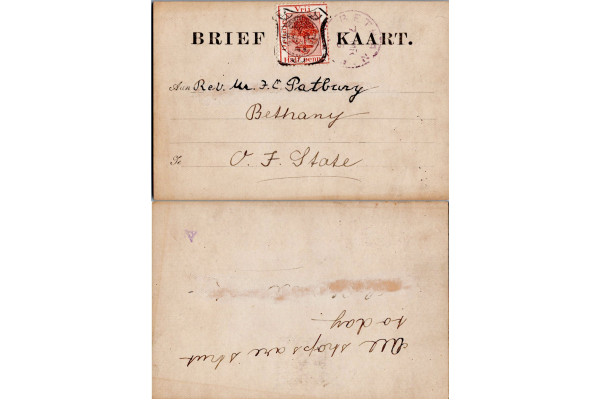 BRIEF KAART.
Aan Rev. Mr. F. C Patbury
Bethany
Te O. F. State
All shops are shut
to day.